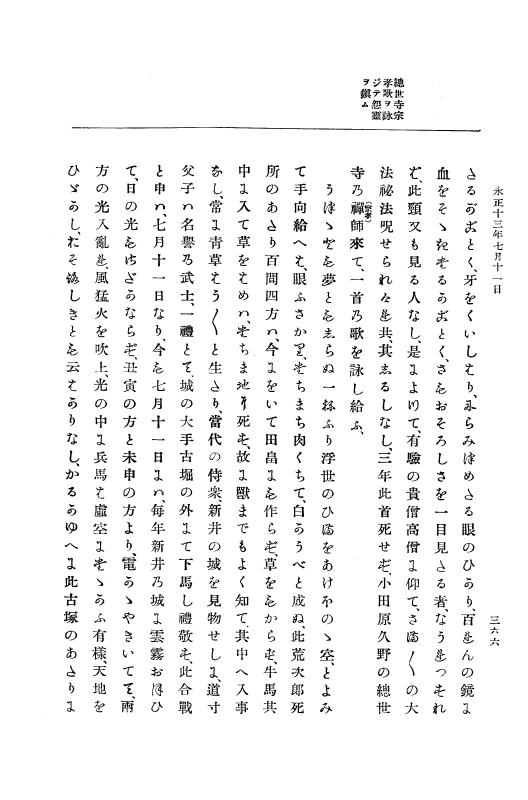 永正十三年七月十一日
三六六
總世寺宗
孝歌ヲ詠
ジテ怨靈
ヲ鎭ム
さるがごとく、牙をくいしばり、にらみつめたる眼のひかり、百れんの鏡に
血をそゝきたるがごとく、さもおそろしさを一目見たる者、なうもつそれ
ば、此頸又も見る人なし、是によりて、有驗の貴僧高僧に仰て、さま〲の大
法祕法呪せられ共、其しるしなし、三年此首死せず、小田原久野の總世
寺の禪師(宗孝)來て、一首の歌を詠し給ふ、
うつゝとも夢ともしらぬ一ねふり浮世のひまをあけほのゝ空、とよみ
て手向給へば、眼ふさがり、たちまち肉くちて、白かうべと成ぬ、此荒次郎死
所のあたり百間四方ハ、今にをいて田畠にも作らず、草をもからず、牛馬其
中に入て草をはめハ、たちまち地にて死す、故に獸までもよく知て、其中へ入事
なし、常に青草はう〱と生たり、當代の侍衆、新井の城を見物せしに、道寸
父子ハ名譽の武士、一禮とて、城の大手古堀の外にて下馬し禮敬す、此合戰
と申ハ、七月十一日なり、今も七月十一日にハ、毎年新井の城に雲霧おほひ
て、日の光もさだかならず、丑寅の方と未申の方より、電かゝやきいてゝ、兩
方の光入亂れ、風猛火を吹上、光の中に兵馬も虚空にたゝかふ有樣、天地を
ひゞかし、おそろしきとも云はかりなし、かるかゆへに此古塚のあたりに